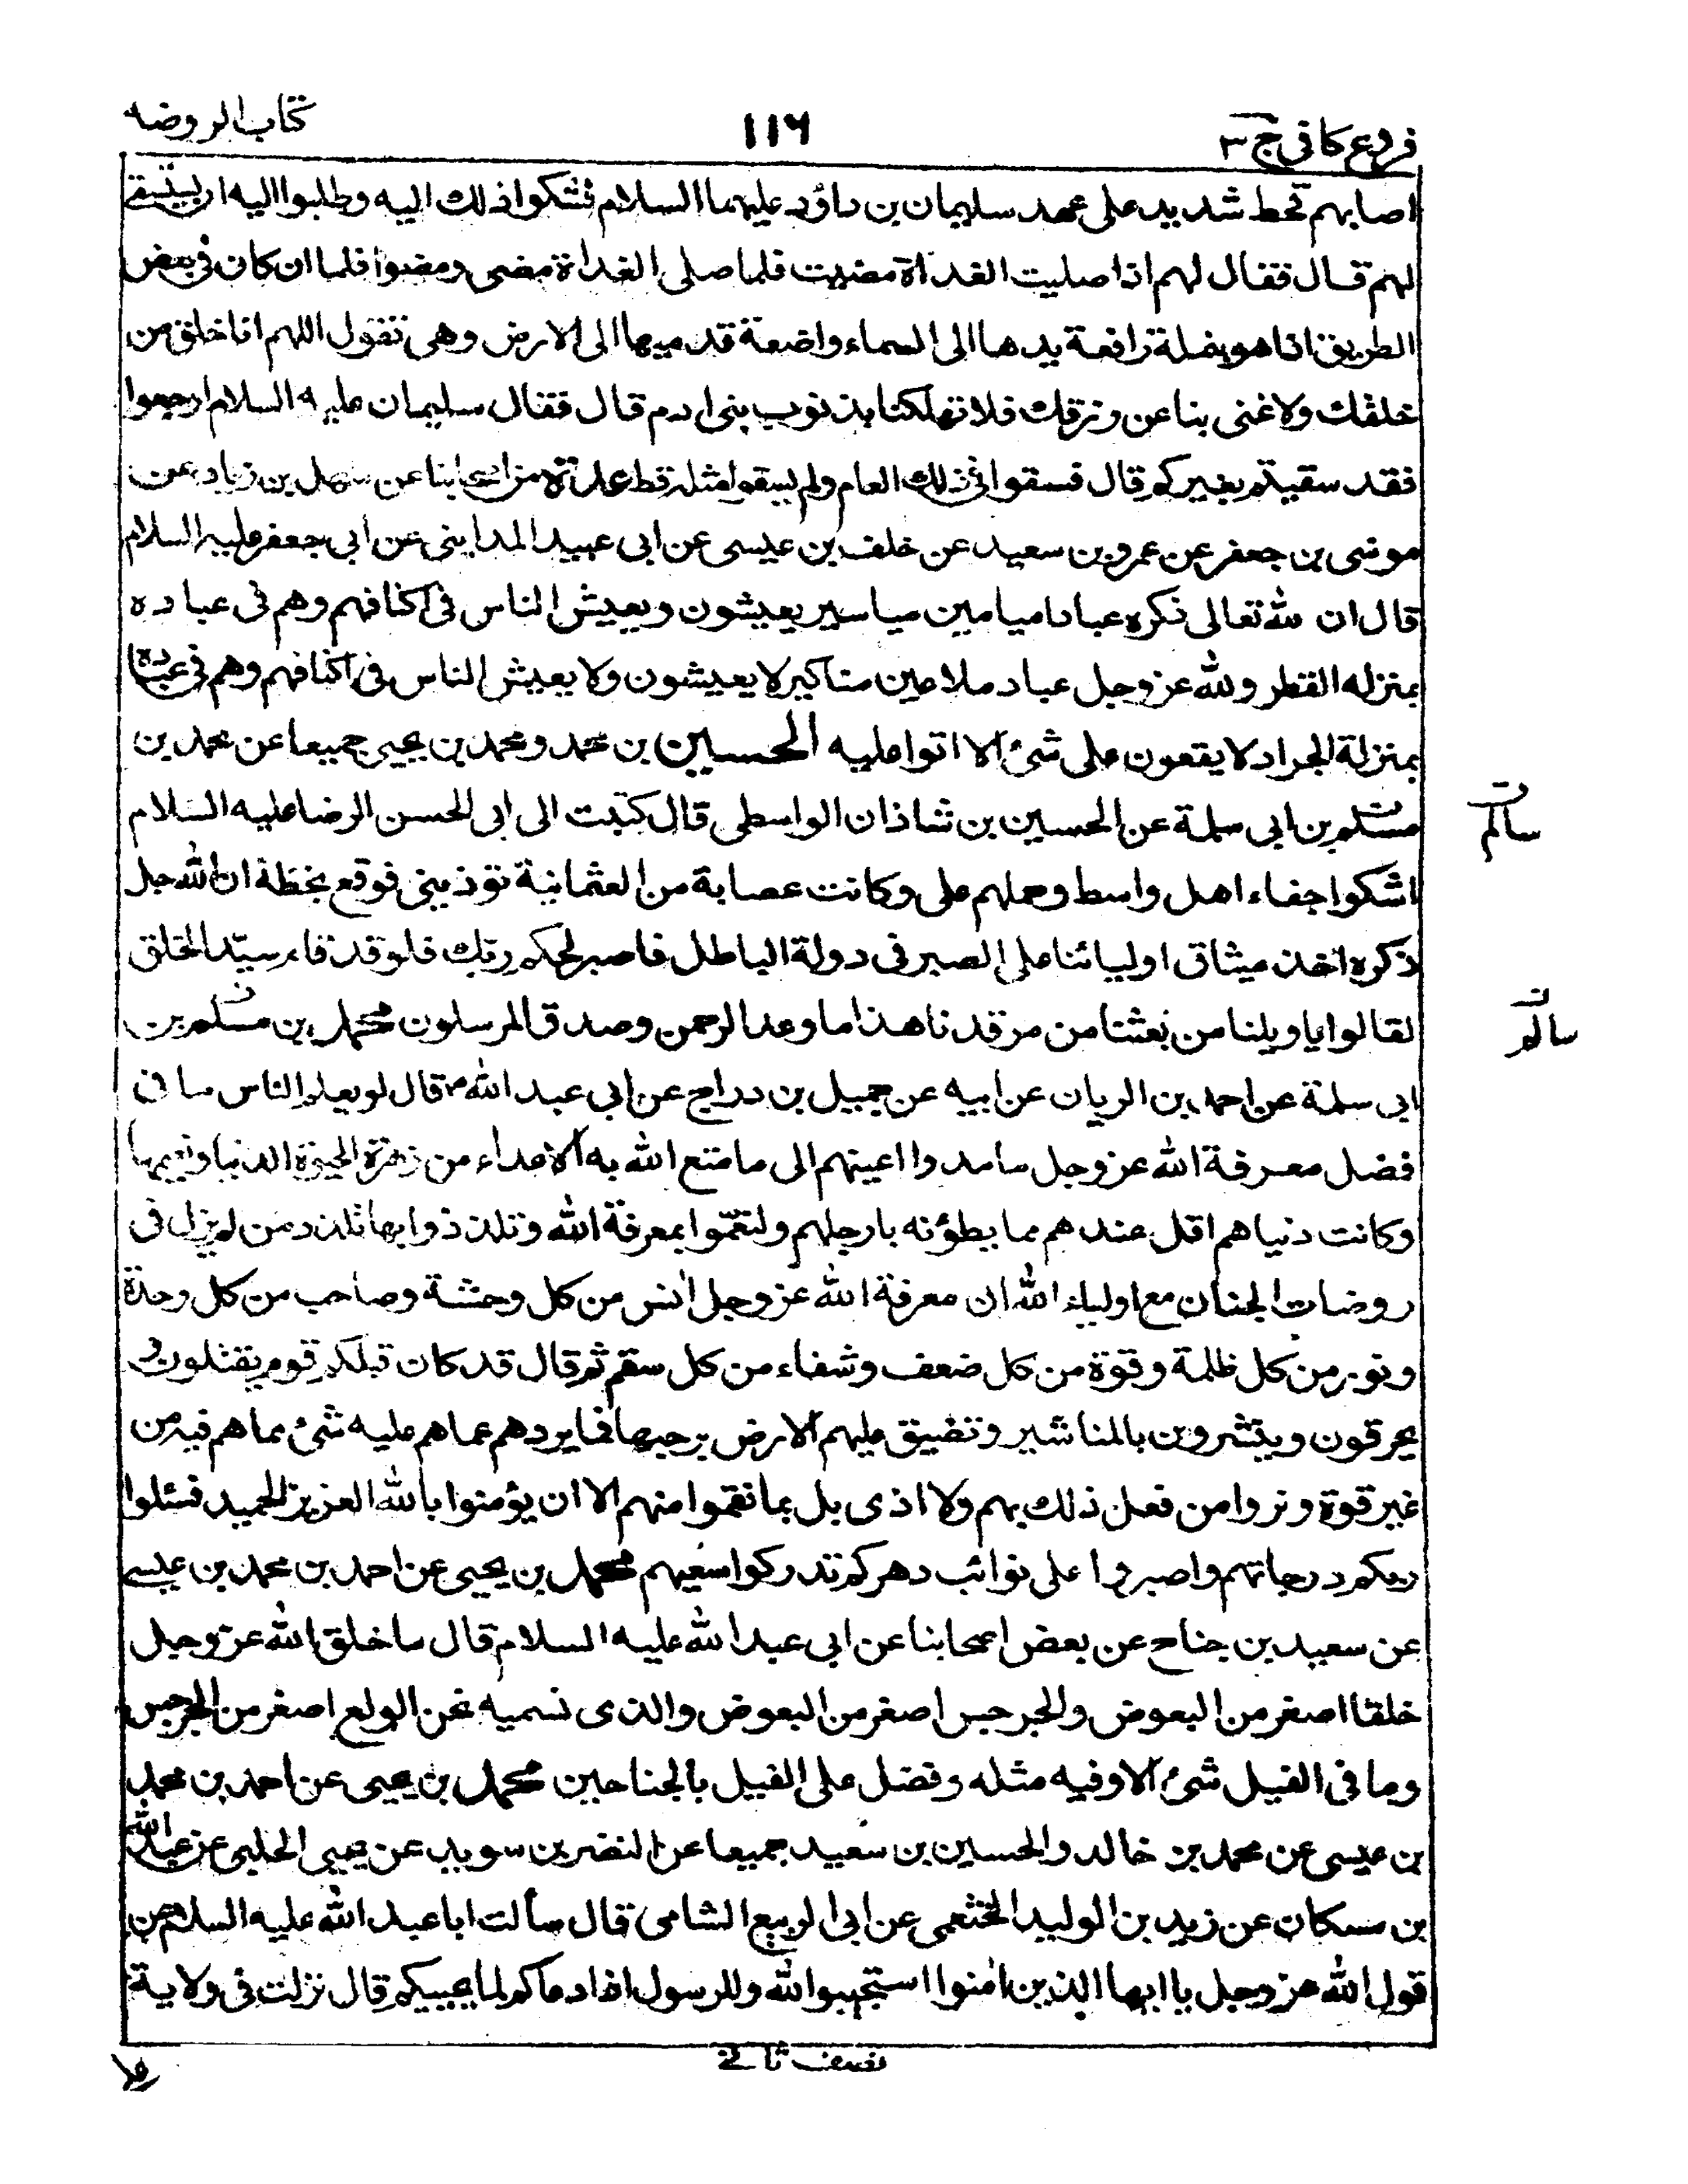 فروع كافى ج ٣
١١٦
كتاب الروضه
اصابهم قحط شديد على عهد سليمان بن داؤد عليهما السلام فشكوا ذلك اليه وطلبوا اليه ان يستسقى
لهم قال فقال لهم اذا صليت الغداة مضيت فلما صلى الغداة مضى ومضوا فلما ان كان فى بعض
الطريق اذا هو بنملة رافعة يدها الى السماء واضعة قدميها الى الارض وهى تقول اللهم انا خلق من
خلقك ولا غنى بنا عن رزقك فلا تهلكنا بذنوب بنى ادم قال فقال سليمان عليه السلام ارجعوا
فقد سقيتم بغيركم قال فسقوا فى ذلك العام ولم يسقوا مثله قط عدة من اصحابنا عن سهل بن زياد عن
موسى بن جعفر عن عمرو بن سعيد عن خلف بن عيسى عن ابى عبيد المداينى عن ابى جعفر عليه السلام
قال ان لله تعالى ذكره عبادا ميامين مياسير يعيشون ويعيش الناس فى اكنافهم وهم فى عباده
بمنزله القطر ولله عز وجل عباد ملاعين مناكير لا يعيشون ولا يعيش الناس فى اكنافهم وهم فى عباده
بمنزلة الجراد لا يقعون على شئ الا اتوا عليه الحسين بن محمد ومحمد بن يحيى جميعا عن محمد بن
مسلم بن ابى سلمة عن الحسين بن شاذان الواسطى قال كتبت الى ابى الحسن الرضا عليه السلام
سالم ن
اشكوا جفاء اهل واسط وحملهم على وكانت عصابة من العثمانية تؤذينى فوقع بخطه ان الله جل
ذكره اخذ ميثاق اوليائنا على الصبر فى دولة الباطل فاصبر لحكم ربك فلو قد قام سيّد الخلق
لقالوا يا ويلنا من بعثنا من مرقدنا هذا ما وعد الرحمن وصدق المرسلون محمد بن مسلم بن
سالم ن
ابى سلمة عن احمد بن الريان عن ابيه عن جميل بن دراج عن ابى عبد الله ع قال لو يعلم الناس ما فى
فضل معرفة الله عز وجل ما مدوا اعينهم الى ما متع الله به الاعداء من زهرة الحيوة الدنيا ونعيمها
وكانت دنياهم اقل عندهم مما يطؤنه بارجلهم ولنعّموا بمعرفة الله وتلذذوا بها تلذذ من لم يزل فى
روضات الجنان مع اولياء الله ان معرفة الله عز وجل انس من كل وحشة وصاحب من كل وحدة
ونور من كل ظلمة وقوة من كل ضعف وشفاء من كل سقم ثم قال قد كان قبلكم قوم يقتلون و
يحرقون وينشرون بالمناشير وتضيق عليهم الارض برحبها فما يردهم عما هم عليه شئ مما هم فيه من
غير قوة وتروا من فعل ذلك بهم ولا اذى بل بما نقموا منهم الا ان يؤمنوا بالله العزيز الحميد فسئلوا
ربكم درجاتهم واصبروا على نوائب دهركم تدركوا سعيهم محمد بن يحيى عن احمد بن محمد بن عيسى
عن سعيد بن جناح عن بعض اصحابنا عن ابى عبد الله عليه السلام قال ما خلق الله عز وجل
خلقا اصغر من البعوض والجرجس اصغر من البعوض والذى نسميه نحن الولع اصغر من الجرجس
وما فى الفيل شئ الا وفيه مثله وفضل على الفيل بالجناحين محمد بن يحيى عن احمد بن محمد
بن عيسى عن محمد بن خالد والحسين بن سعيد جميعا عن النضر بن سويد عن يحيى الحلبى عن عبد الله
بن مسكان عن زيد بن الوليد الخثعمى عن ابى الربيع الشامى قال سألت ابا عبد الله عليه السلام عن
قول الله عز وجل يا ايها الذين امنوا استجيبوا لله وللرسول اذا دعاكم لما يحييكم قال نزلت فى ولاية
نصف ثانى